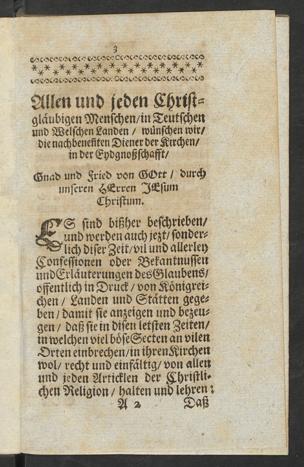 3
Allen und jeden Christ-
gläubigen Menschen/ in Teutschen
und Welschen Landen / wünschen wir/
die nachbeneñten Diener der Kirchen/
in der Eydgnoßschafft/
Gnad und Fried von GOtt / durch
unseren HErren JEsum
Christum.
ES sind bißher beschrieben/
und werden auch jezt/ sonder-
lich diser Zeit/ vil und allerley
Confessionen oder Bekantnussen
und Erläuterungen des Glaubens/
offentlich in Druck/ von Königrei-
chen / Landen und Stätten gege-
ben / damit sie anzeigen und bezeu-
gen / daß sie in disen letsten Zeiten/
in welchen viel böse Secten an vilen
Orten einbrechen/ in ihren Kirchen
wol/ recht und einfältig/ von allen
und jeden Articklen der Christli-
chen Religion / halten und lehren:
A 2 Daß